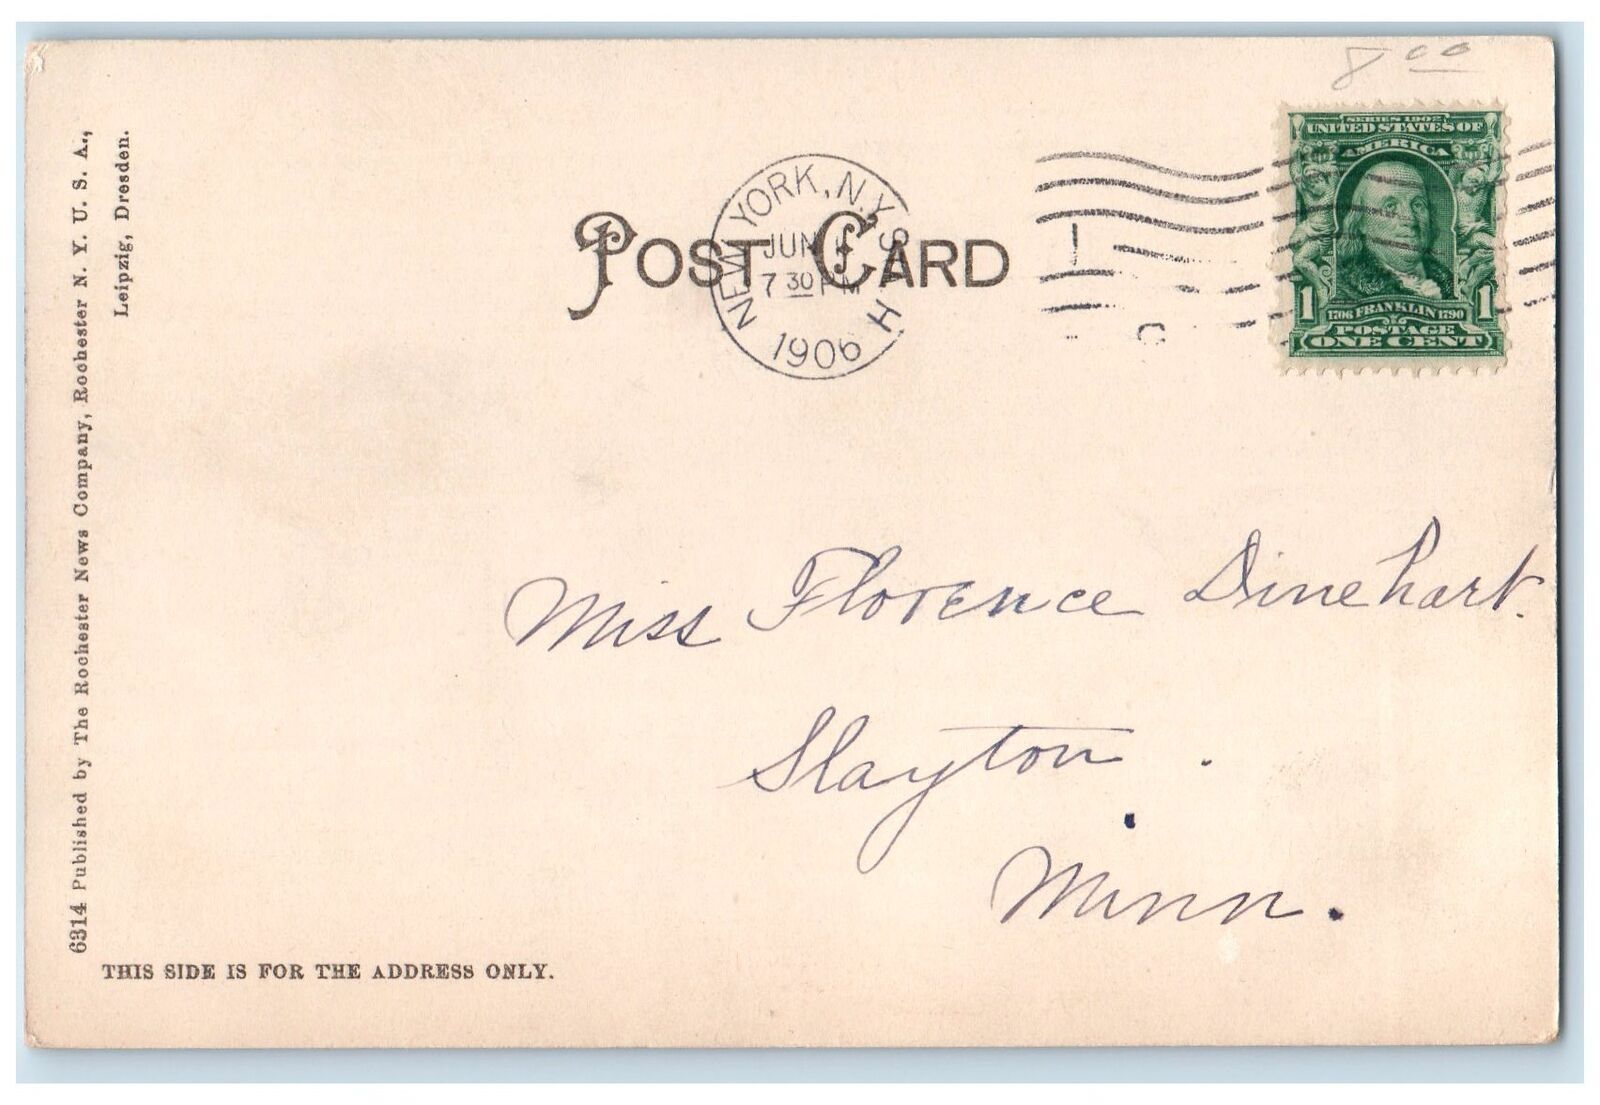 8 00
SERIES 1902
UNITED STATES OF
AMERICA
1 1706 FRANKLIN 1790 1
POSTAGE
ONE CENT
NEW YORK, N.Y. STA H
JUN
7 30 PM
1906
POST CARD
Miss Florence Dinehart.
Slayton.
Minn.
6314 Published by The Rochester News Company, Rochester N. Y. U. S. A.,
Leipzig, Dresden.
THIS SIDE IS FOR THE ADDRESS ONLY.